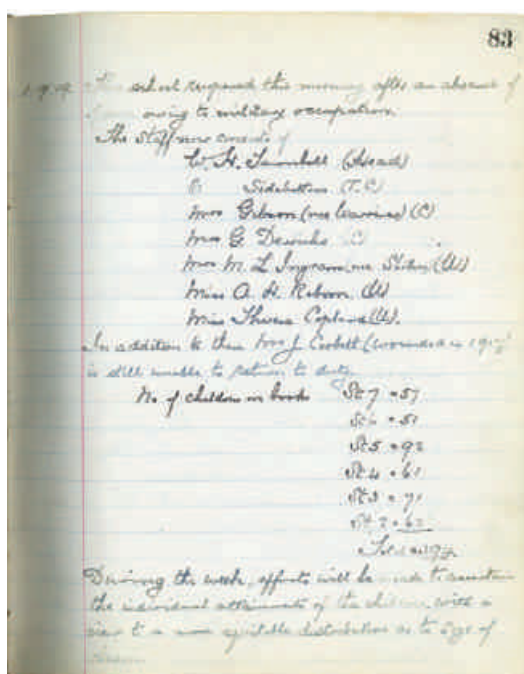 83
school reopened this morning after an absence of
owing to military occupation.
The Staff now consists of
W. H. Turnbull (Head)
Sidebottom (T.C)
Mrs Gibson (nee Leaviss) (C)
Mrs G. Dewicks (C)
Mrs M. L Ingram nee (U)
Miss A. H. Robson (U)
Miss Copland (U).
In addition to these Mrs J. Corbett (wounded in
is still unable to return to duty
No of children on books St 7 = 57
St 6 = 51
St 5 = 92
St 4 = 61
St 3 = 71
St 2 = 62
Total
During the week, efforts will be made to ascertain
the individual attainments of the children with a
view to a more equitable distribution as to size of